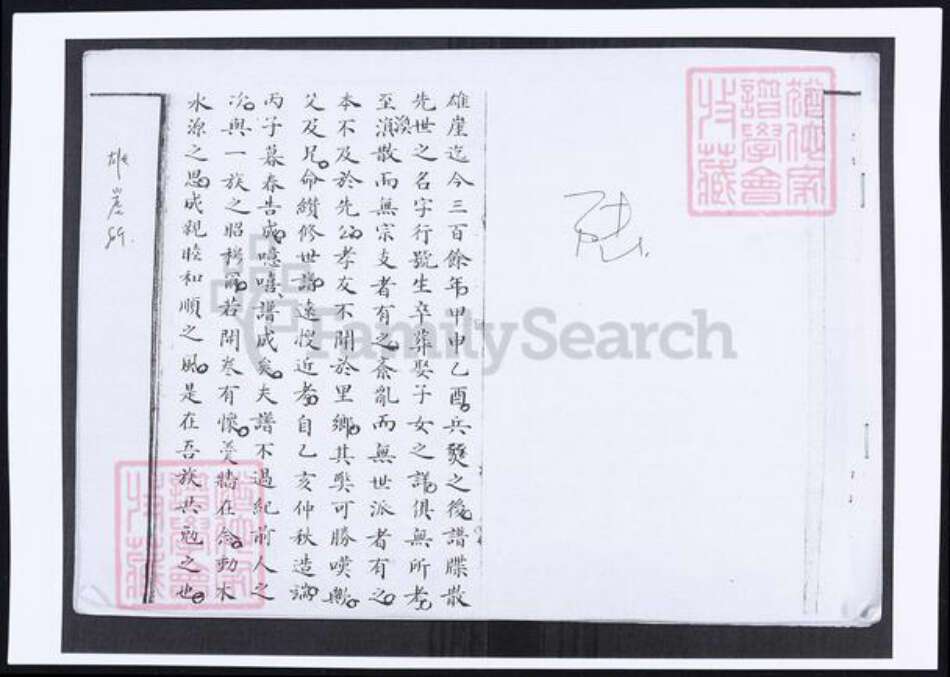 雄崖迄今三百餘年甲申乙酉兵燹之後譜牒散
先世之名字行號生卒葬娶子女之詳俱無所考
至渙散而無宗支者有之紊亂而無世派者有之
本不及於先公孝友不聞於里鄉其獘可勝嘆歟
父及兄命纘修世譜遠搜近考自乙亥仲秋造端
丙子暮春告成噫嘻譜成矣夫譜不過紀前人之
次與一族之昭穆爾若開卷有懷羹牆在念動木
水源之思成親睦和順之風是在吾族共勉之也
雄崖
FamilySearch